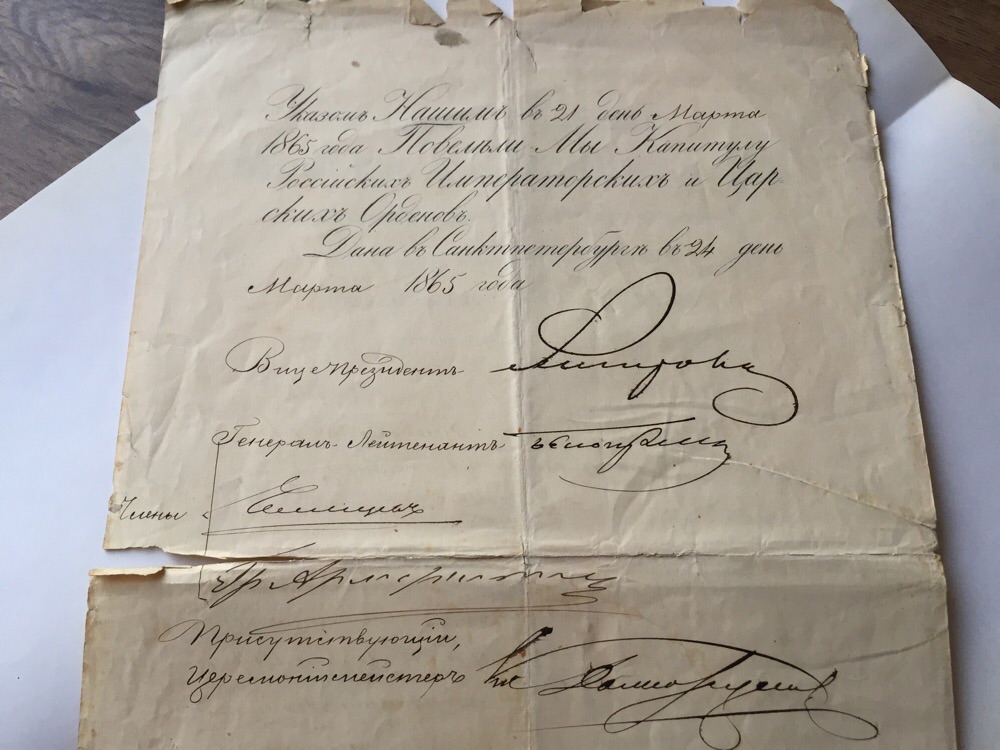 Указомъ Нашимъ въ 21 день Марта
1865 года Повелѣли Мы Капитулу
Россійскихъ Императорскихъ и Цар-
скихъ Орденовъ.
Дана въ Санктпетербургѣ въ 24 день
Марта 1865 года
Вице Президентъ
Генералъ Лейтенантъ
Члены
Гр
Присутствующій,
Церемоніймейстеръ Кн